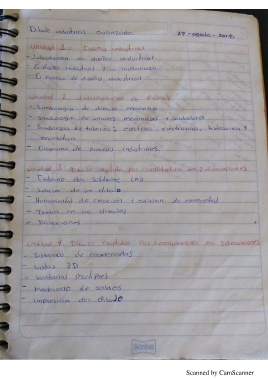 Dibujo industrial avanzado 27-agosto-2018
Unidad 1. Diseño industrial
- Introducción al diseño industrial
- El diseño industrial y
- El proceso de diseño industrial
Unidad 2. de
- Simbología de dibujo mecánico
- Simbología de uniones mecánicas y soldadura
- Simbología de tuberías, eléctrica, electrónica, hidráulica y
neumática
- Diagrama de procesos industriales.
Unidad 3. Dibujo asistido por computadora en 2 dimensiones
- Entorno del software CAD
- Edición de un dibujo
- Herramientas de creación y edición de
- Textos en los dibujos
-
Unidad 4. Dibujo asistido por computadora en 3 dimensiones
- Sistemas de coordenadas
- Vistas 3D
- Ventanas
- Modelado de sólidos
- Impresión del dibujo
Scribe
Scanned by CamScanner